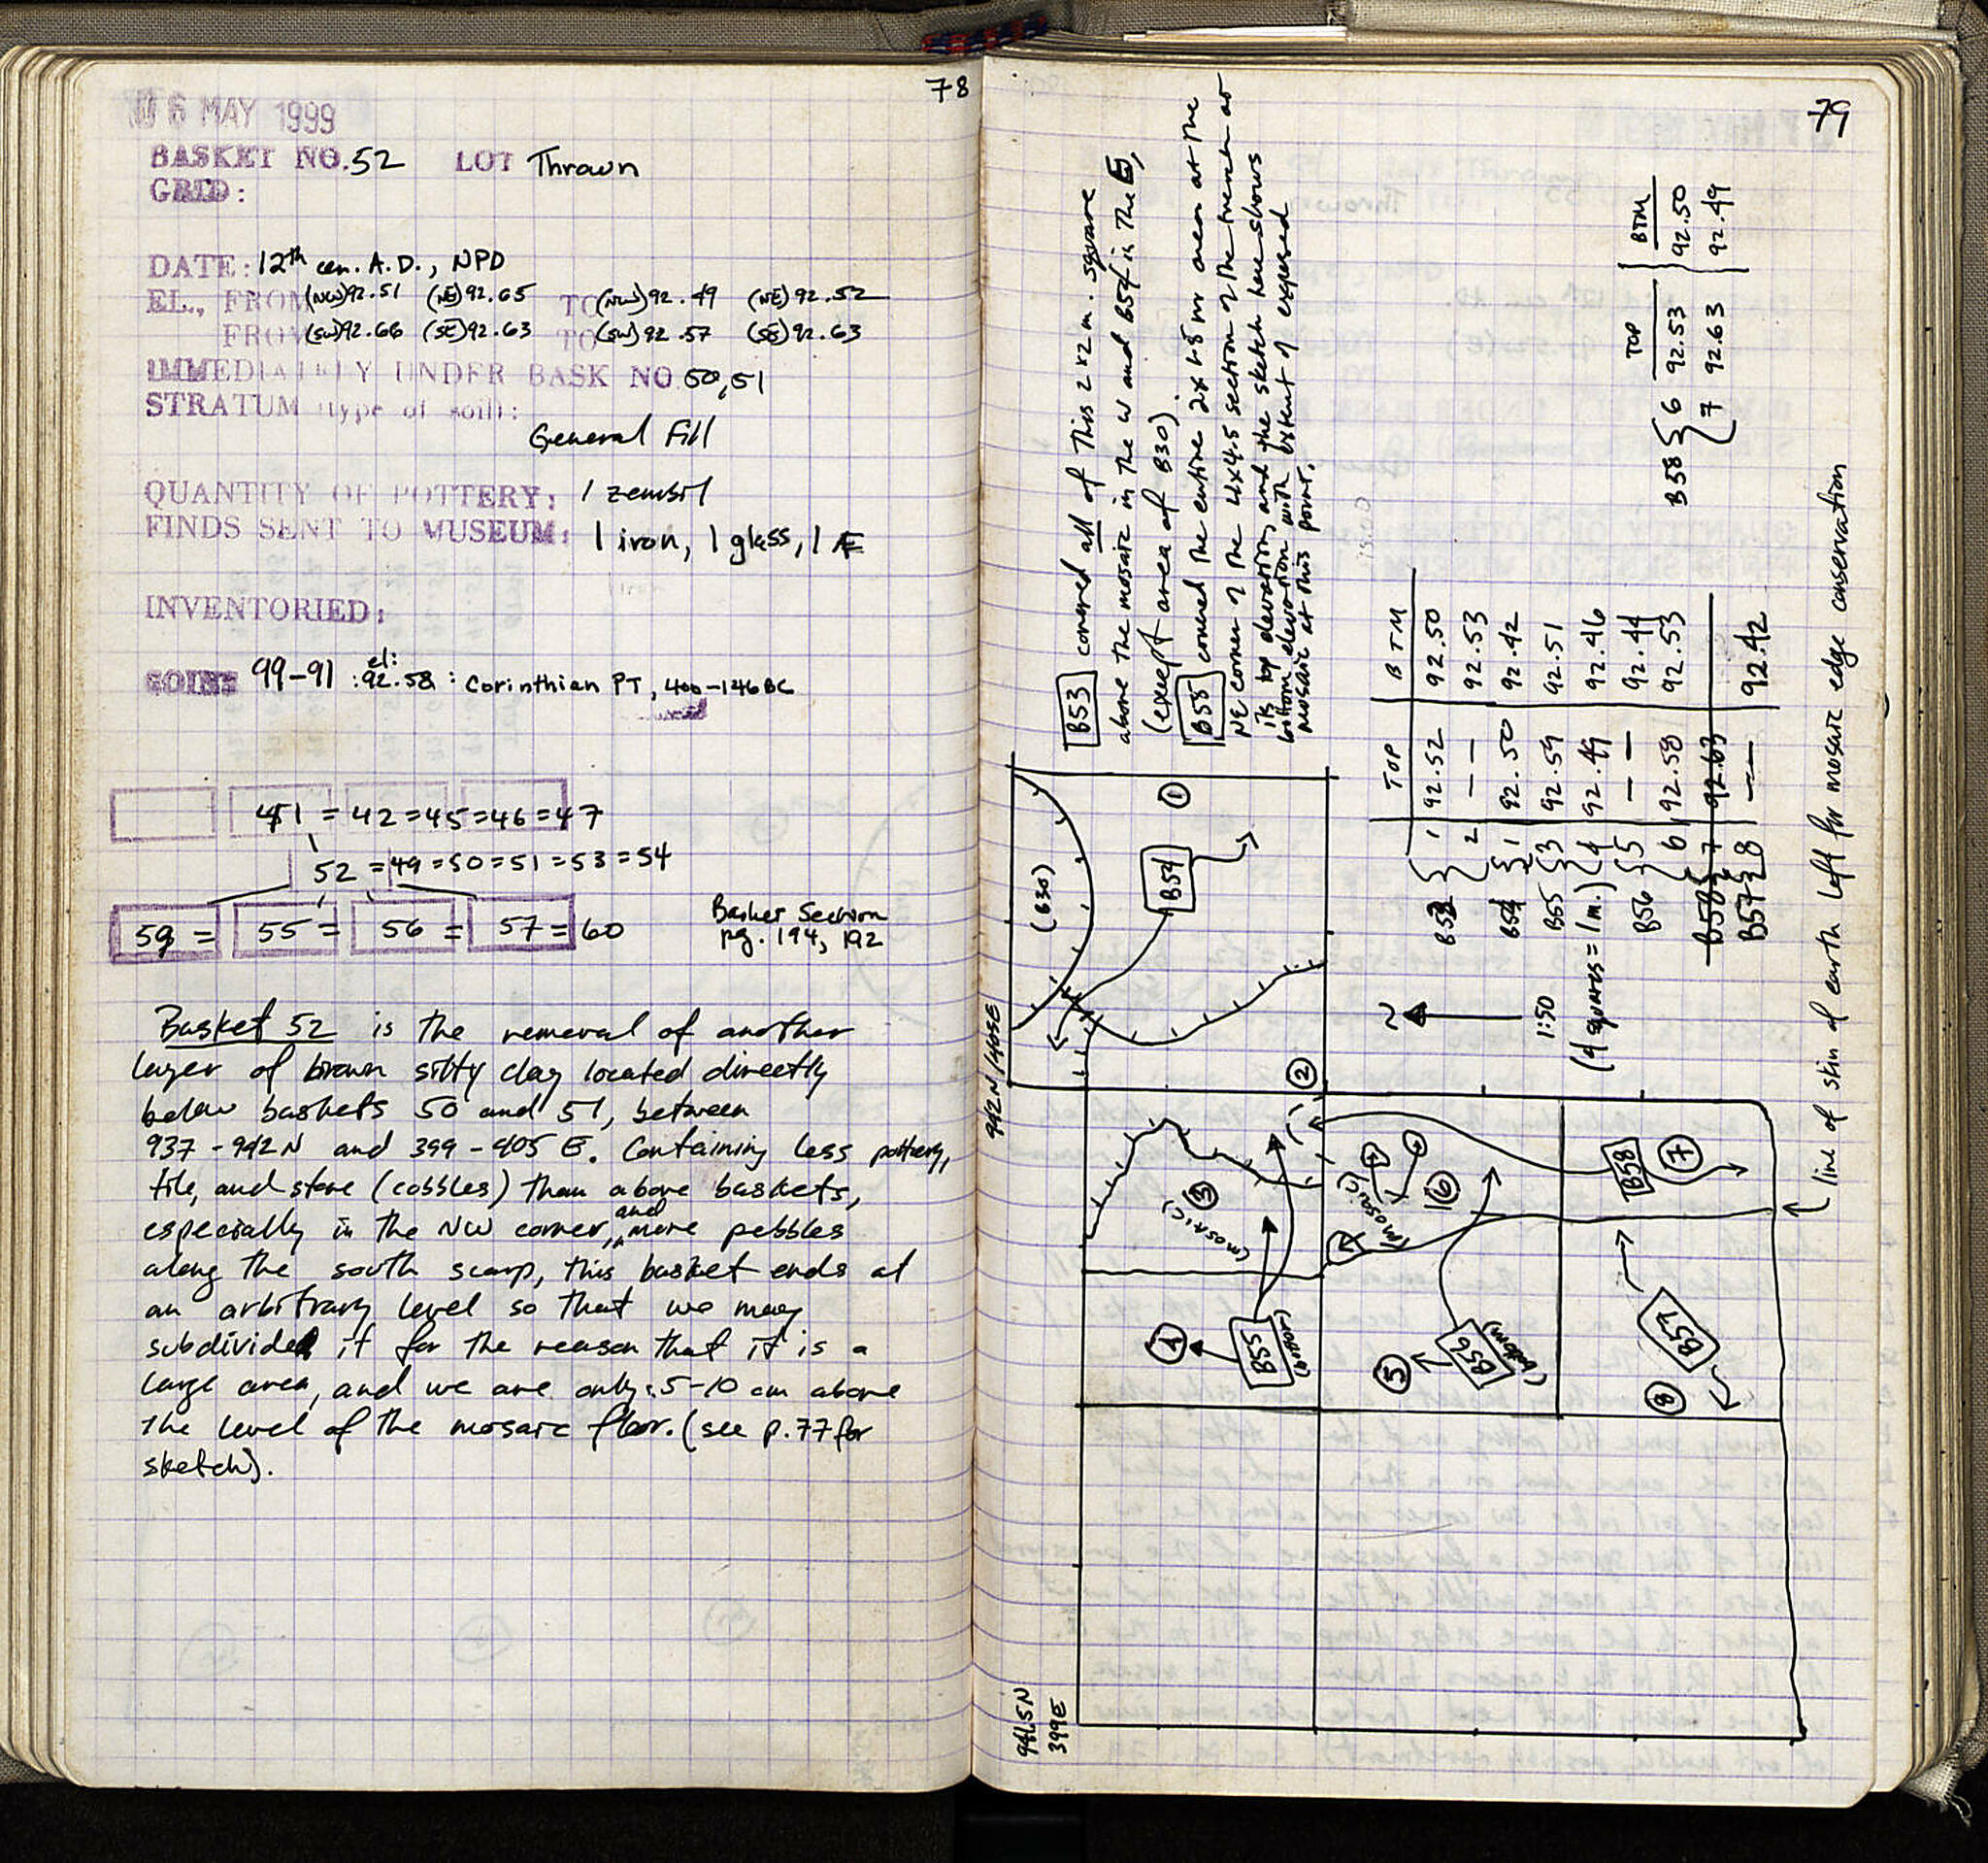 78
06 MAY 1999
BASKET NO. 52 LOT Thrown
GRID:
DATE: 12th cen. A.D., NPD
EL., FROM (NW) 92.51 (NE) 92.65 TO (NW) 92.49 (NE) 92.52
FROM (SW) 92.66 (SE) 92.63 TO (SW) 92.57 (SE) 92.63
IMMEDIATELY UNDER BASK NO 50, 51
STRATUM (type of soil):
General Fill
QUANTITY OF POTTERY: 1 zembil
FINDS SENT TO MUSEUM: 1 iron, 1 glass, 1 Æ
INVENTORIED:
COINS 99-91 : el: 92.58 : Corinthian PT, 400-146 BC
41 = 42 = 45 = 46 = 47
52 = 49 = 50 = 51 = 53 = 54
59 = 55 = 56 = 57 = 60
Basket Section
pg. 194, 192
Basket 52 is the removal of another
layer of brown silty clay located directly
below baskets 50 and 51, between
937-942 N and 399-405 E. Containing less pottery,
tile, and stone (cobbles) than above baskets,
especially in the NW corner, and more pebbles
along the south scarp, this basket ends at
an arbitrary level so that we may
subdivide it for the reason that it is a
large area, and we are only 5-10 cm above
the level of the mosaic floor. (see p. 77 for
sketch).
79
B53 covered all of this 2x2 m. square
above the mosaic in the W and B54 is the E,
(except area of B30).
B55 covered the entire 2x1.5 m area at the
NE corner of the 4x4.5 section of the trench at
its top elevation, and the sketch here shows
bottom elevation with extent of exposed
mosaic at this point.
TOP BTM
B58 { 6 92.53 92.50
7 92.63 92.49
TOP BTM
B53 { 1 92.52 92.50
2 -- 92.53
B54 { 1 92.50 92.42
B55 { 3 92.59 92.51
4 92.49 92.46
B56 { 5 -- 92.44
6 92.58 92.53
B58 { 7 92.63
B57 { 8 -- 92.42
1:50
(4 squares = 1m.)
942N/405E
(B30)
1
B54
2
3
(mosaic)
4
B55
(bottom)
(mosaic)
6
5
B56
(bottom)
B58
7
B57
8
line of skin of earth left for mosaic edge conservation
399E